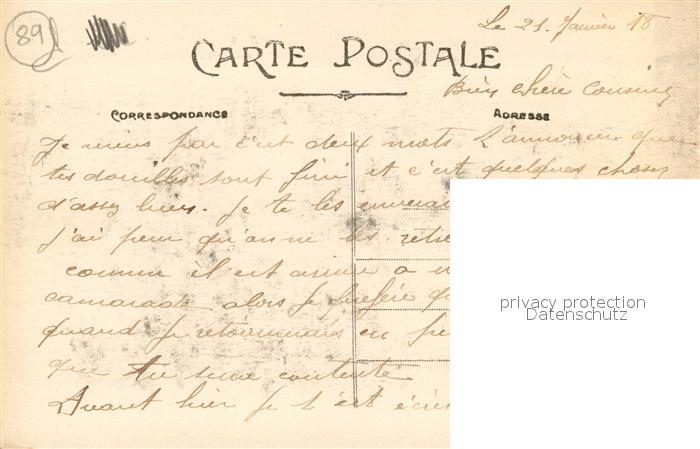 89
Le 21. Janvier 18
CARTE POSTALE
Bien chère Cousine
CORRESPONDANCE
ADRESSE
Je viens par c'est deux mots t'annoncer que
tes douilles sont fini et c'est quelques choses
d'assez bien. Je te les
j'ai peur qu'on ne les
comme il est arrivé a
camarade alors je préfère
quand je retournerais en
que tu sera contente
Avant hier je
privacy protection
Datenschutz